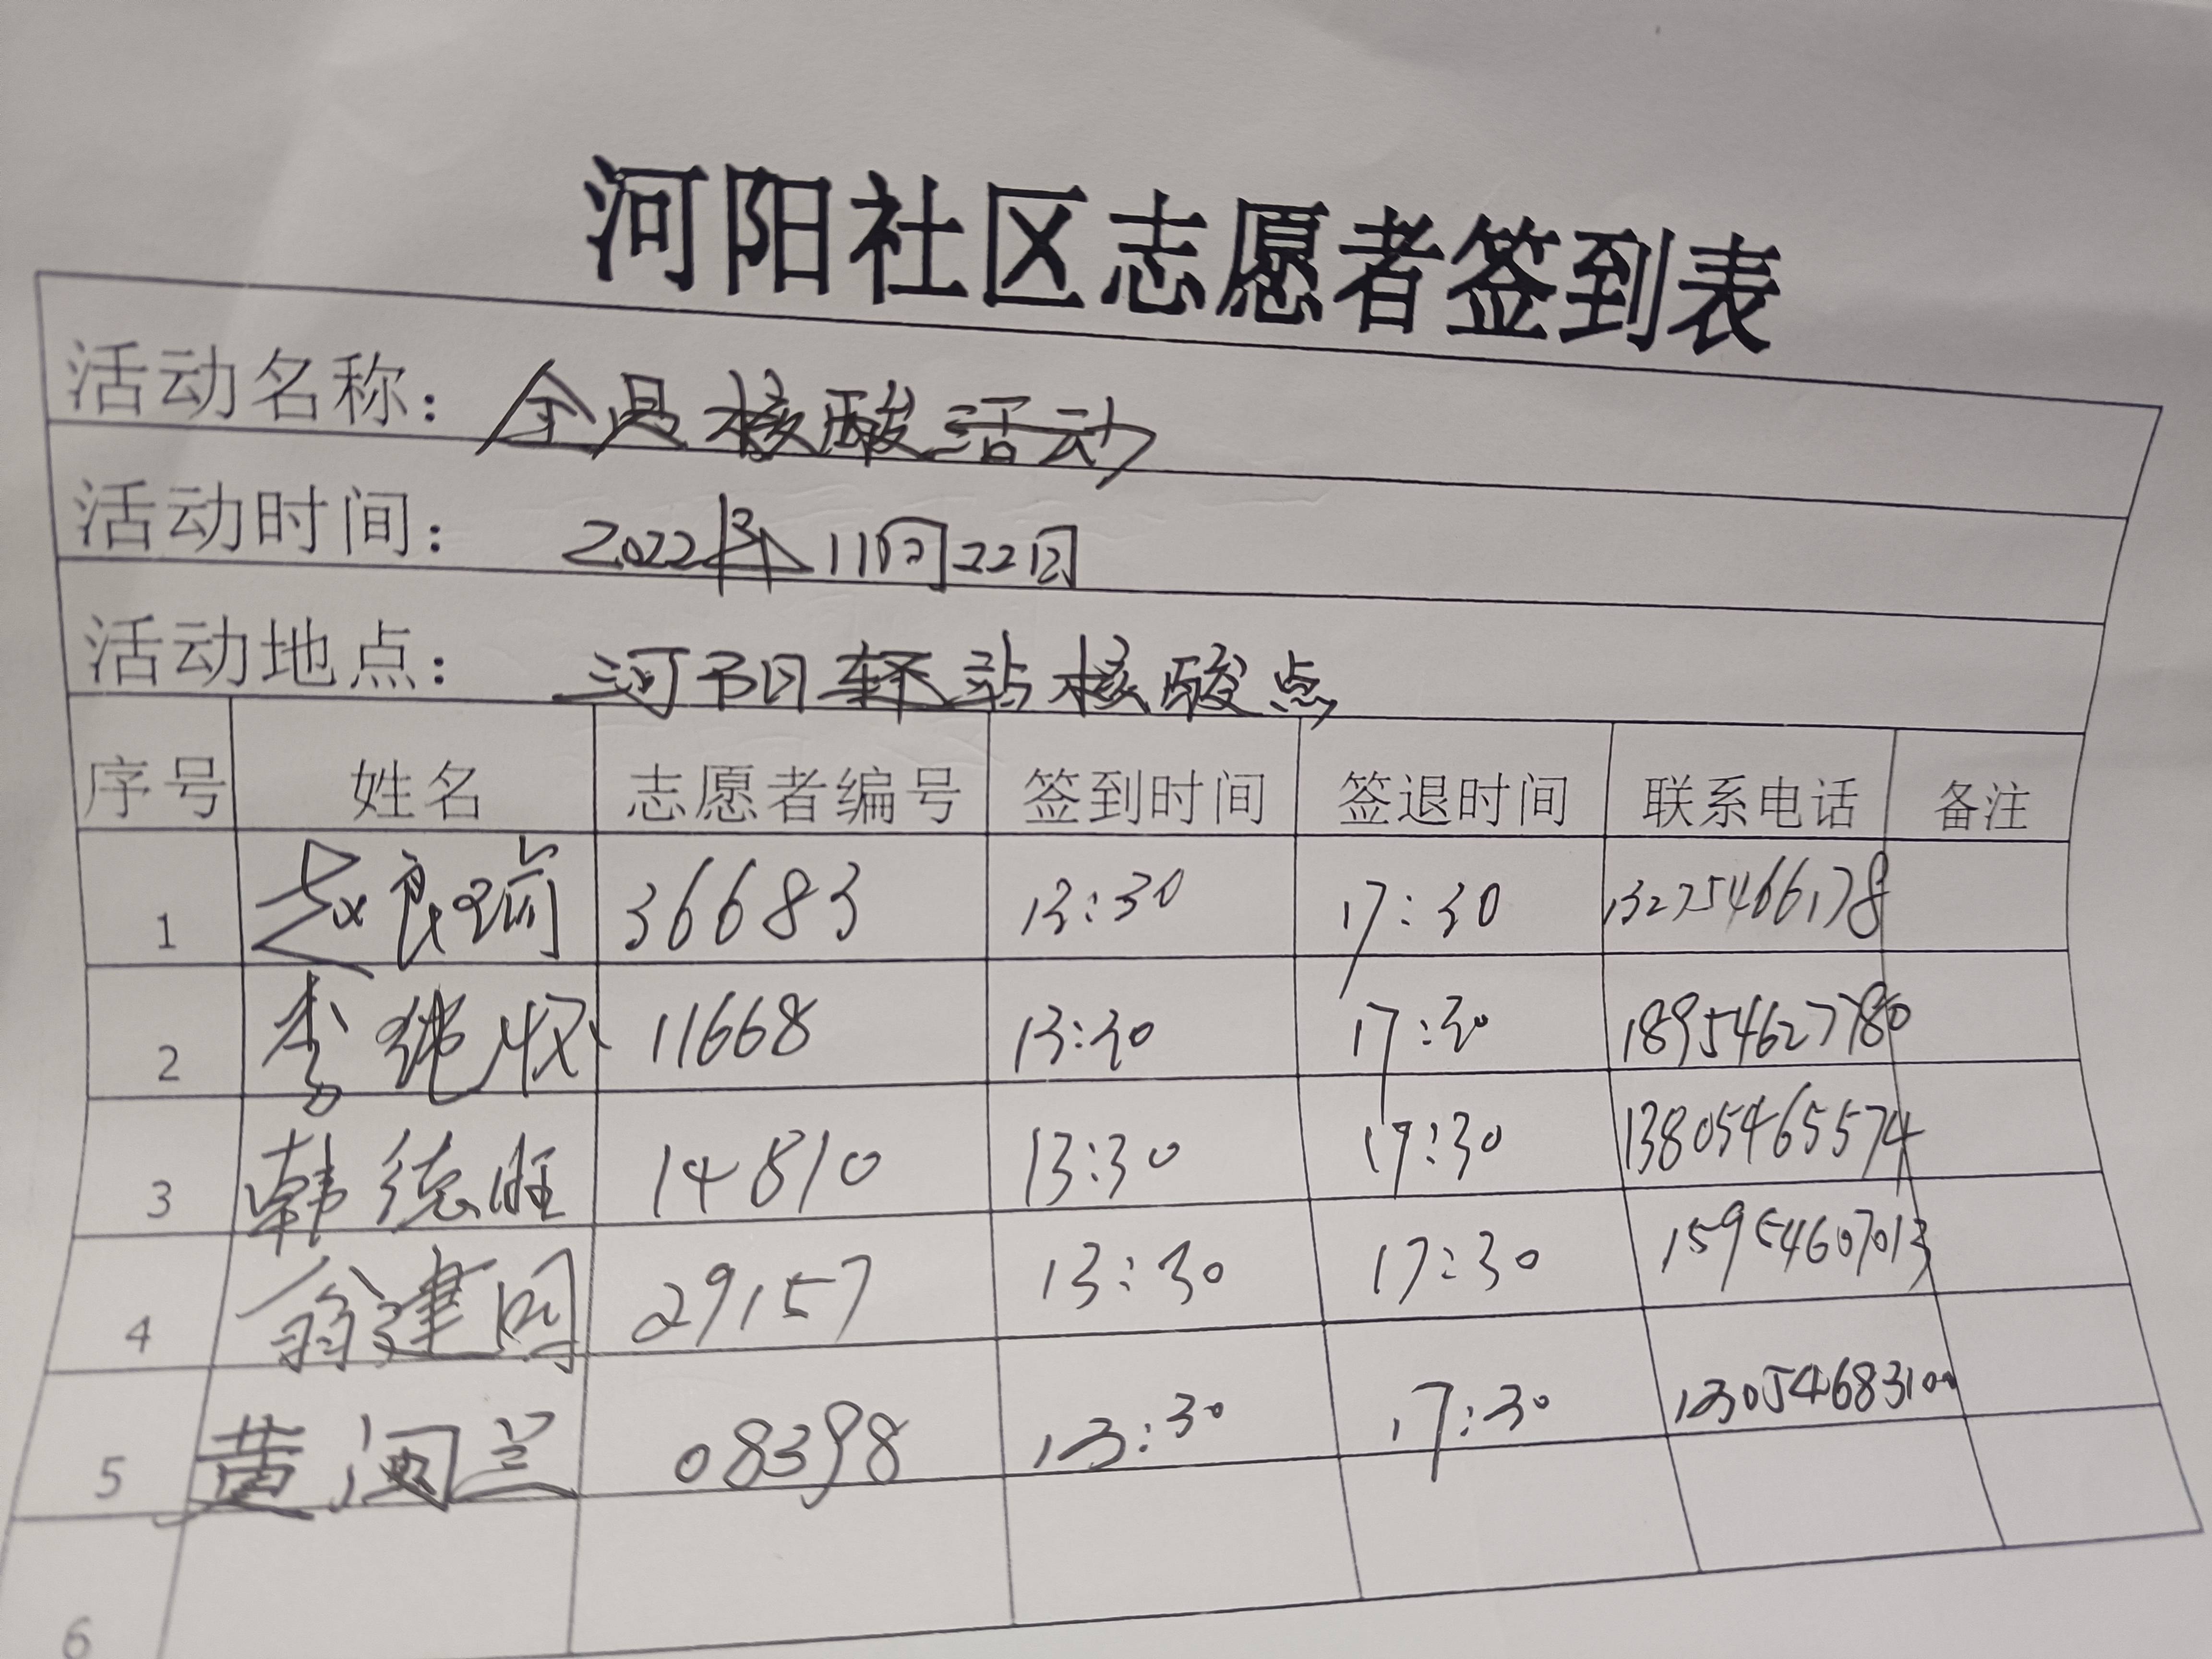 河阳社区志愿者签到表
活动名称：全员核酸活动
活动时间：2022年11月22日
活动地点：河阳驿站核酸点
序号 姓名 志愿者编号 签到时间 签退时间 联系电话 备注
1 赵良瑜 36683 13:30 17:30 13275466178
2 李 11668 13:30 17:30 18954627780
3 韩德旺 14810 13:30 17:30 13805465574
4 翁建国 29157 13:30 17:30 15954607013
5 黄闽兰 08398 13:30 17:30 13054683100
6